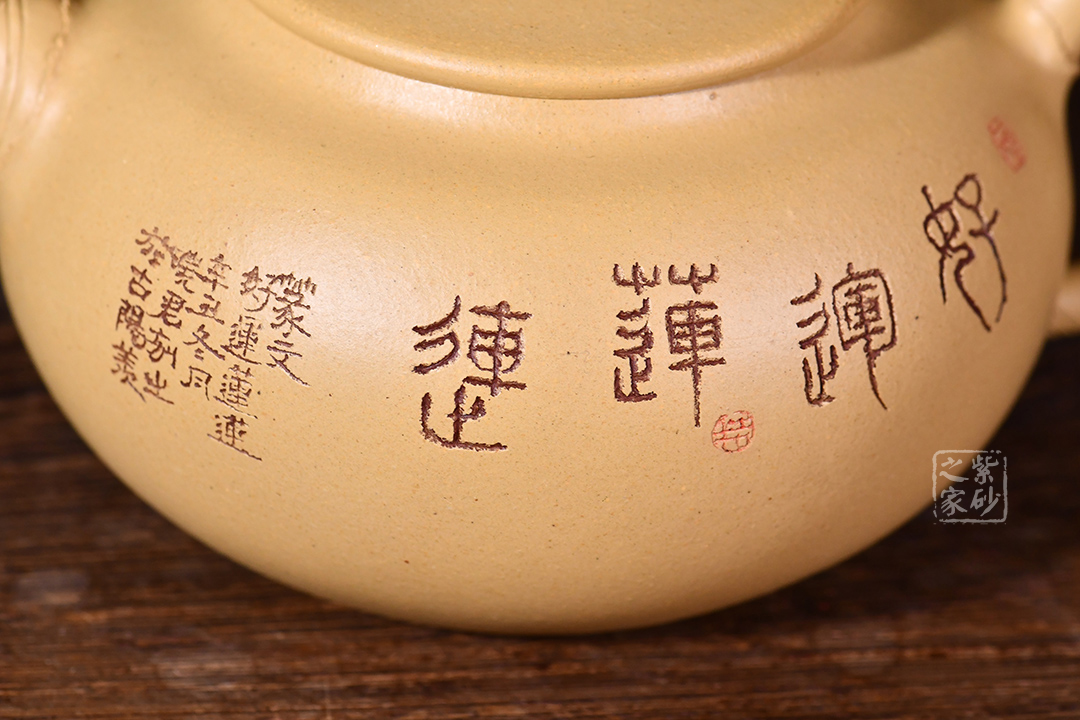 好運蓮連
篆文
好運蓮連
辛丑冬月
曉君刻
於古陽羨
紫砂
之家